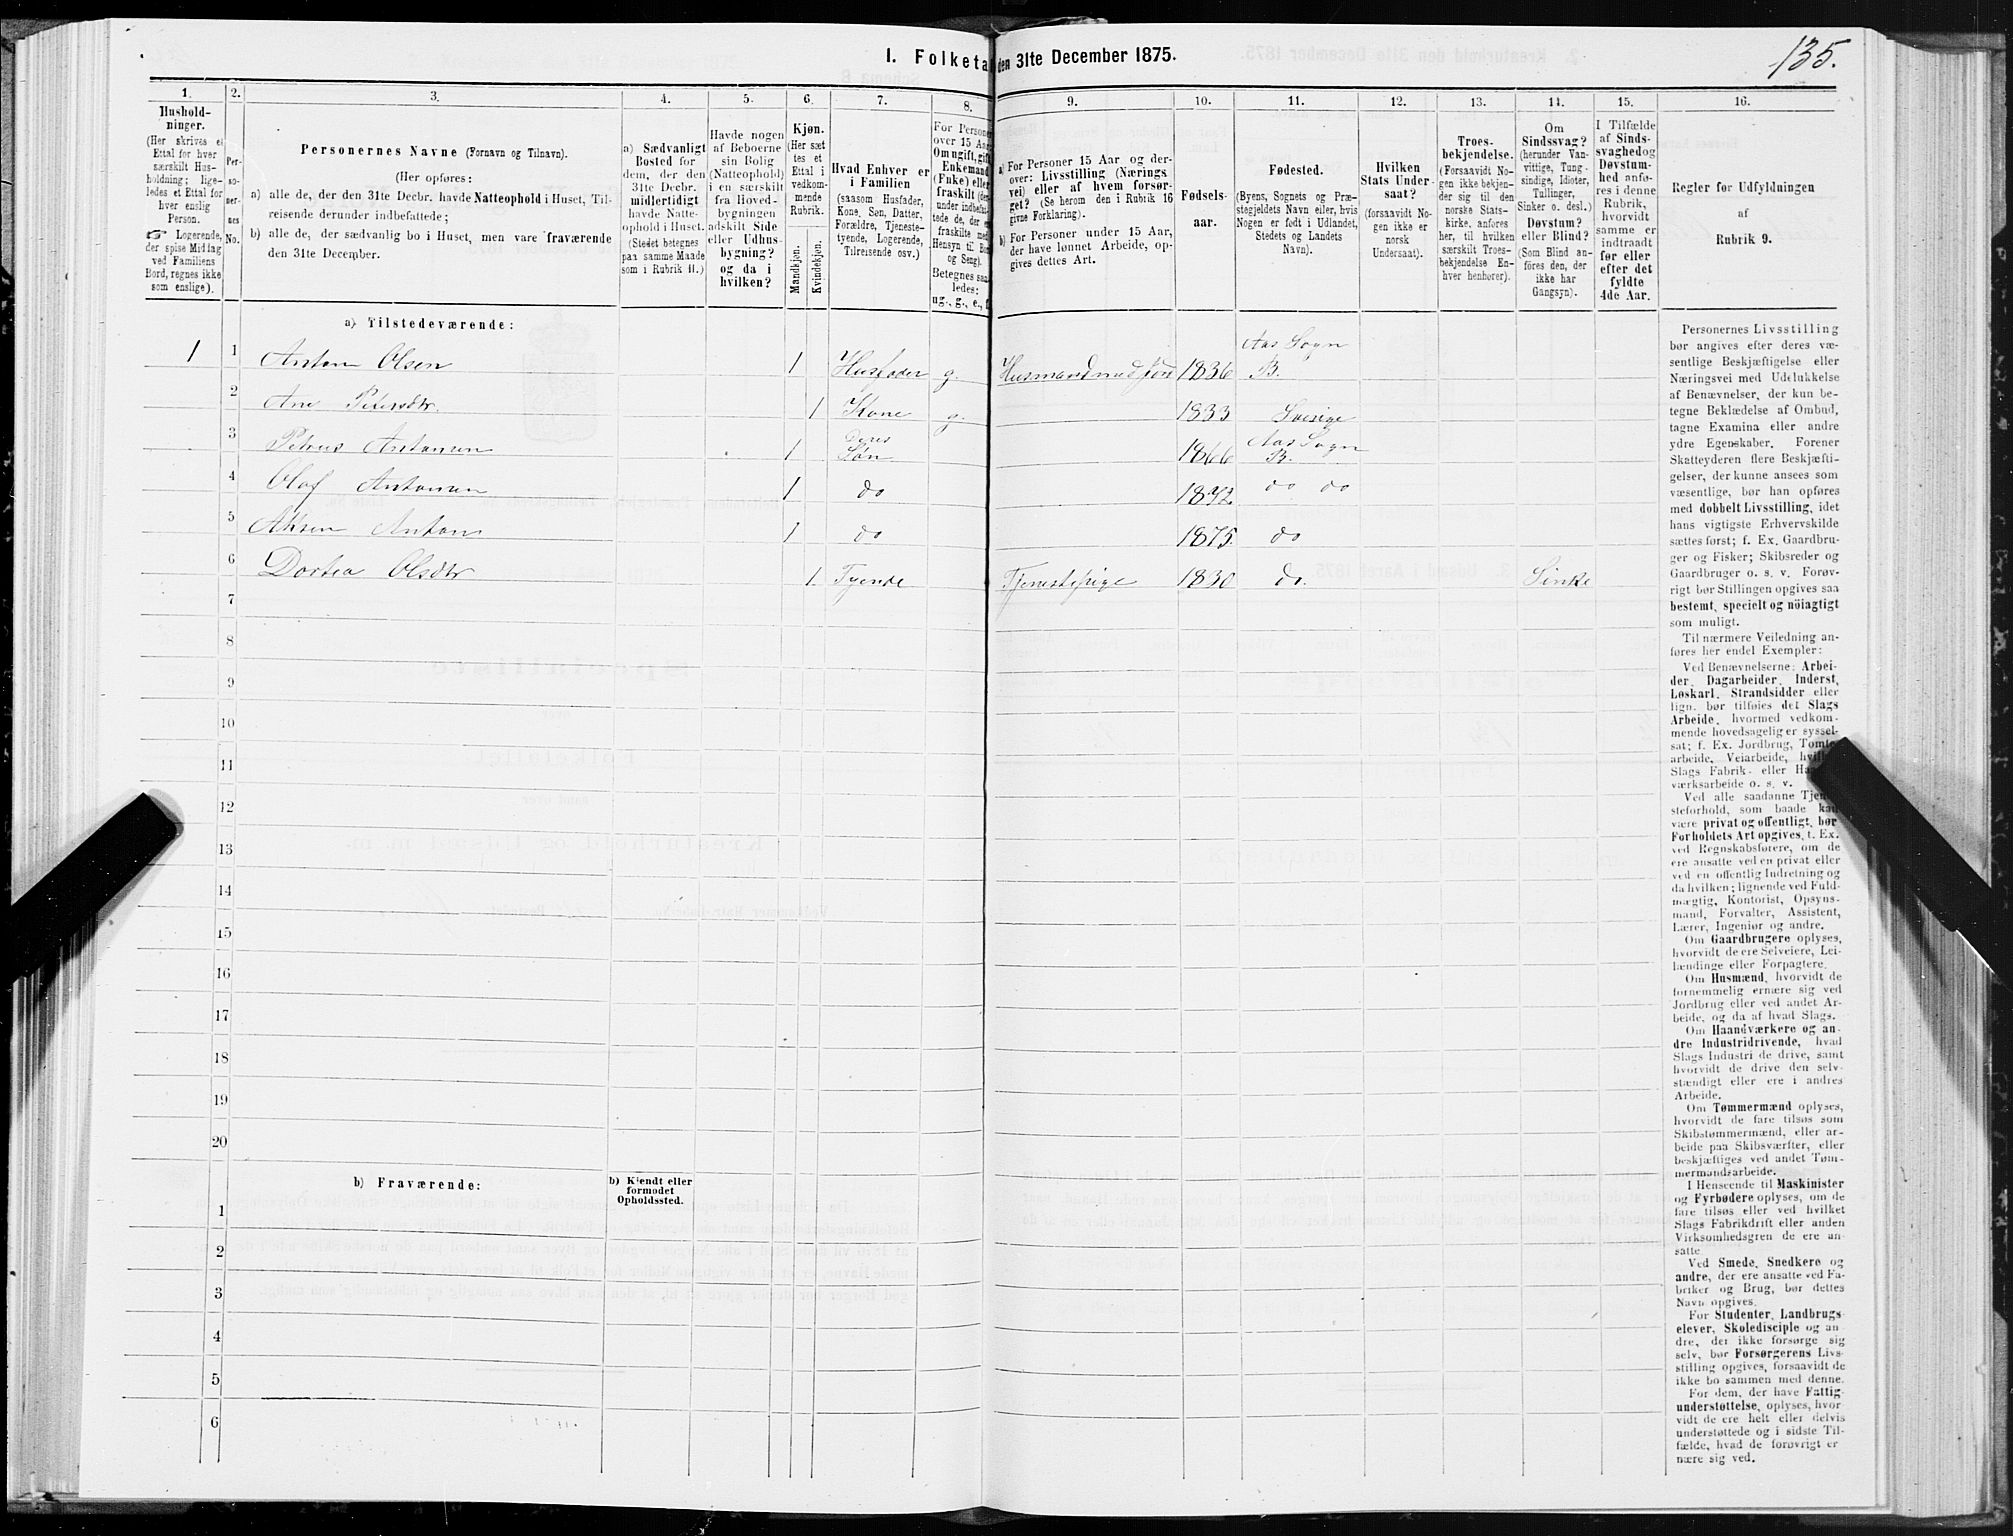 135.
I. Folketal den 31te December 1875.
1. 2. 3. 4. 5. 6. 7. 8. 9. 10. 11. 12. 13. 14. 15. 16.
Hushold-
ninger.
(Her skrives et
Ettal for hver
særskilt Hus-
holdning; lige-
ledes et Ettal for
hver enslig
Person.
☞ Logerende,
der spise Middag
ved Familiens
Bord, regnes ikke
som enslige).
Per-
so-
ner-
nes
No.
Personernes Navne (Fornavn og Tilnavn).
(Her opføres:
a) alle de, der den 31te Decbr. havde Natteophold i Huset, Til-
reisende derunder indbefattede;
b) alle de, der sædvanlig bo i Huset, men vare fraværende
den 31te December.
a) Sædvanligt
Bosted for
dem, der den
31te Decbr.
midlertidigt
havde Natte-
ophold i Huset.
(Stedet betegnes
paa samme Maade
som i Rubrik 11.)
Havde nogen
af Beboerne
sin Bolig
(Natteophold)
i en særskilt
fra Hoved-
bygningen
adskilt Side
eller Udhus-
bygning?
og da i
hvilken?
Kjøn.
(Her sæt
tes et
Ettal i
vedkom-
mende
Rubrik.
Mandkjøn.
Kvindekjøn.
Hvad Enhver er
i Familien
(saasom Husfader,
Kone, Søn, Datter,
Forældre, Tjeneste-
tyende, Logerende,
Tilreisende osv.)
For Personer
over 15 Aar:
Om ugift, gift
Enkemand
(Enke) eller
fraskilt
Betegnes saa
ledes:
ug., g., e., f.
a) For Personer 15 Aar og der-
over: Livsstilling (Nærings
vei) eller af hvem forsør-
get? (Se herom den i Rubrik 16
givne Forklaring).
b) For Personer under 15 Aar,
der have lønnet Arbeide, op-
gives dettes Art.
Fødsels-
aar.
Fødested.
(Byens, Sognets og Præ-
stegjeldets Navn eller, hvis
Nogen er født i Udlandet,
Stedets og Landets
Navn).
Hvilken
Stats Under-
saat?
(forsaavidt No-
gen ikke er
norsk
Undersaat).
Troes-
bekjendelse.
(Forsaavidt No-
gen ikke bekjen-
der sig til den
norske Stats-
kirke, anføres
her, til hvilken
særskilt Troes-
bekjendelse En-
hver henhører).
Om
Sindssvag?
(herunder Van-
vittige, Tung-
sindige, Idioter,
Tullinger,
Sinker o. desl.)
Døvstum?
eller Blind?
(Som Blind an-
føres den, der
ikke har
Gangsyn).
I Tilfælde
af Sinds-
svaghed og
Døvstum-
hed anfø-
res i denne
Rubrik,
hvorvidt
samme er
indtraadt
før eller
efter det
fyldte
4de Aar.
Regler for Udfyldningen
af
Rubrik 9.
a) Tilstedeværende:
1 1 Anton Olsen 1 Husfader g. Husmand med Jord 1836 Aas Sogn B.
2 Ane Petersdtr. 1 Kone g. 1833 Sverige
3 Petrus Antonsen 1 Deres Søn 1866 Aas Sogn B.
4 Olaf Antonsen 1 do 1872 do do
5 Anton 1 do 1875. do
6 Dortea Olsdtr 1. Tyende Tjenestepige 1830 do. Sinke
7
8
9
10
11
12
13
14
15
16
17
18
19
20
b) Fraværende:
b) Kjendt eller
formodet
Opholdssted.
1
2
3
4
5
6
Personernes Livsstilling
bør angives efter deres væ-
sentlige Beskjæftigelse eller
Næringsvei med Udelukkelse
af Benævnelser, der kun be-
tegne Beklædelse af Ombud,
tagne Examina eller andre
ydre Egenskaber. Forener
Skatteyderen flere Beskjæfti-
gelser, der kunne ansees som
væsentlige, bør han opføres
med dobbelt Livsstilling, idet
hans vigtigste Erhvervskilde
sættes først; f. Ex. Gaardbru-
ger og Fisker; Skibsreder og
Gaardbruger o. s. v. Forøv-
rigt bør Stillingen opgives saa
bestemt, specielt og nöiagtigt
som muligt.
Til nærmere Veiledning an-
føres her endel Exempler:
Ved Benævnelserne: Arbei-
der, Dagarbeider, Inderst,
Løskarl, Strandsidder eller
lign. bør tilføies det Slags
Arbeide, hvormed vedkom-
mende hovedsagelig er syssel-
sat; f. Ex. Jordbrug, Tomte-
arbeide, Veiarbeide,
Slags Fabrik- eller
værksarbeide o. s. v.
Ved alle saadanne
steforhold, som baade kan
være privat og offentligt, bør
Forholdets Art opgives, t. Ex.
ved Regnskabsførere, om de
ere ansatte ved en privat eller
ved en offentlig Indretning og
da hvilken; lignende ved Fuld-
mægtig, Kontorist, Opsyns-
mand, Forvalter, Assistent,
Lærer, Ingeniør og andre.
Om Gaardbrugere oplyses,
hvorvidt de ere Selveiere, Lei-
lændinge eller Forpagtere.
Om Husmænd, hvorvidt de
fornemmelig ernære sig ved
Jordbrug eller ved andet Ar-
beide, og da af hvad Slags.
Om Haandværkere og an-
dre Industridrivende, hvad
Slags Industri de drive, samt
hvorvidt de drive den selv-
stændigt eller ere i andres
Arbeide.
Om Tømmermænd oplyses,
hvorvidt de fare tilsøs som
Skibstømmermænd, eller ar-
beide paa Skibsværfter, eller
beskjæftiges ved andet Tøm-
mermandsarbeide.
I Henseende til Maskinister
og Fyrbødere oplyses, om de
fare tilsøs eller ved hvilket
Slags Fabrikdrift eller anden
Virksomhedsgren de ere an-
satte
Ved Smede, Snedkere og
andre, der ere ansatte ved Fa-
briker og Brug, bør dettes
Navn opgives.
For Studenter, Landbrugs-
elever, Skoledisciple og an-
dre, der ikke forsørge sig
selv, bør Forsørgerens Livs-
stilling opgives, forsaavidt de
ikke bo sammen med denne.
For dem, der have Fattig-
understøttelse, oplyses, hvor-
vidt de ere helt eller delvis
understøttede og i sidste Til-
fælde, hvad de forøvrigt er
nære sig ved.